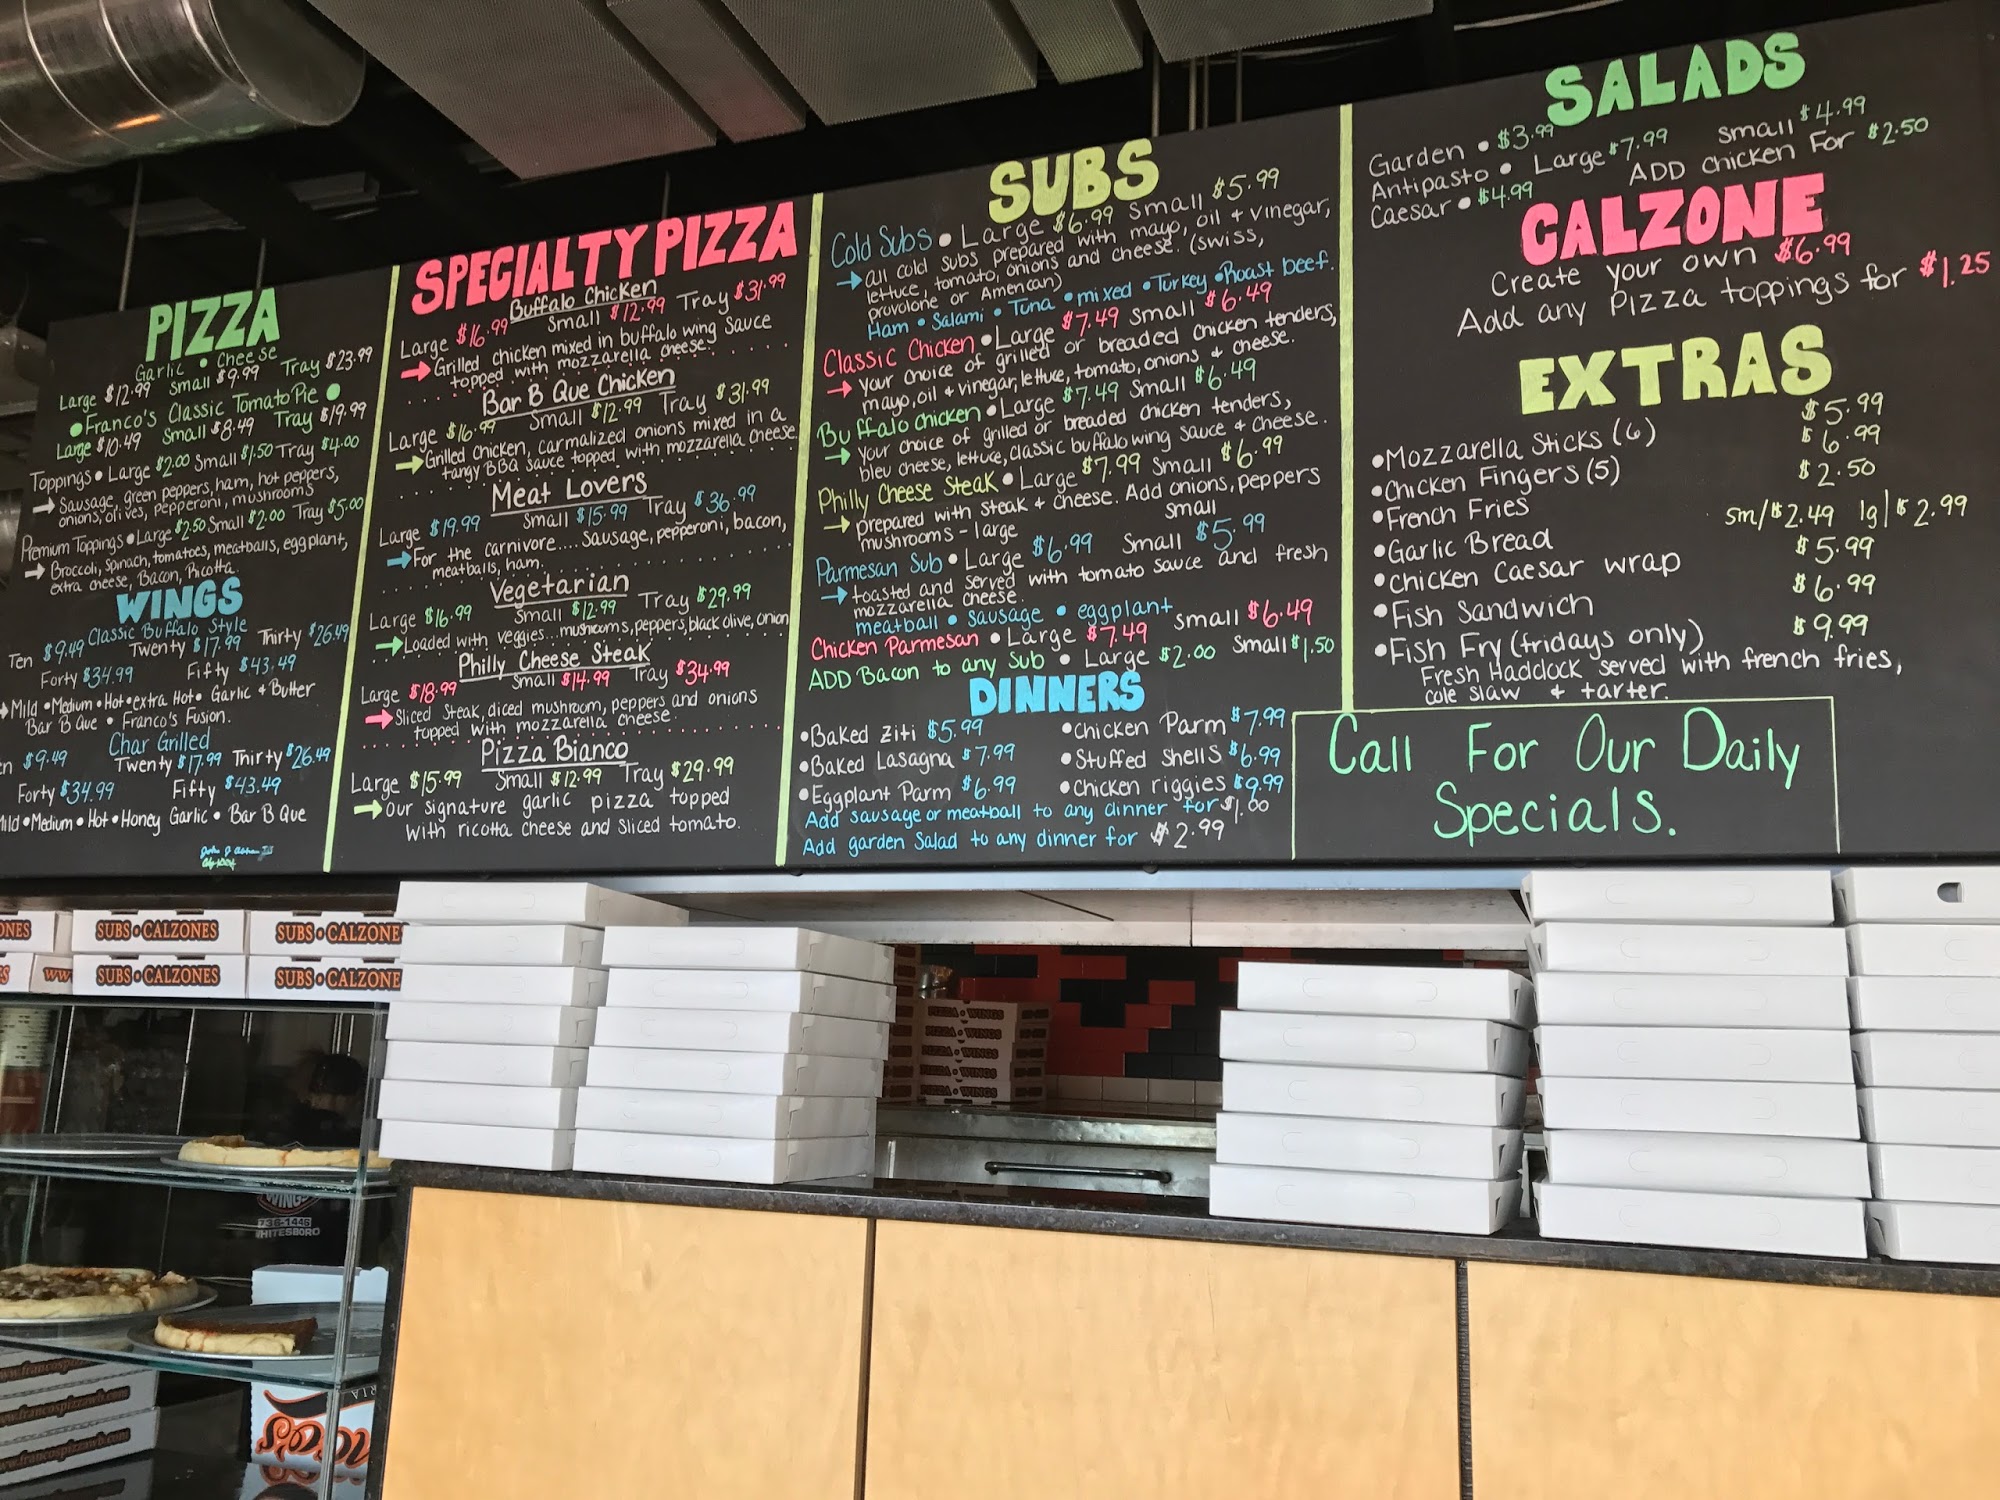 PIZZA
Garlic • Cheese
Large $12.99 Small $9.99 Tray $23.99
•Franco's Classic Tomato Pie •
Large $10.49 Small $8.49 Tray $19.99
Toppings • Large $2.00 Small $1.50 Tray $4.00
→ Sausage, green peppers, ham, hot peppers,
onions, olives, pepperoni, mushrooms
Premium Toppings • Large $2.50 Small $2.00 Tray $5.00
→ Broccoli, spinach, tomatoes, meatballs, eggplant,
extra cheese, Bacon, Ricotta.
WINGS
Classic Buffalo Style
Ten $9.49 Twenty $17.99 Thirty $26.49
Forty $34.99 Fifty $43.49
→ Mild • Medium • Hot • extra Hot • Garlic & Butter
Bar B Que • Franco's Fusion.
Char Grilled
en $9.49 Twenty $17.99 Thirty $26.49
Forty $34.99 Fifty $43.49
Mild • Medium • Hot • Honey Garlic • Bar B Que
SPECIALTY PIZZA
Buffalo Chicken
Large $16.99 Small $12.99 Tray $31.99
→ Grilled chicken mixed in buffalo wing sauce
topped with mozzarella cheese.
Bar B Que Chicken
Large $16.99 Small $12.99 Tray $31.99
→ Grilled chicken, carmalized onions mixed in a
tangy BBQ sauce topped with mozzarella cheese.
Meat Lovers
Large $19.99 Small $15.99 Tray $36.99
→ For the carnivore.... Sausage, pepperoni, bacon,
meatballs, ham.
Vegetarian
Large $16.99 Small $12.99 Tray $29.99
→ Loaded with veggies... mushrooms, peppers, black olive, onion
Philly Cheese Steak
Large $18.99 Small $14.99 Tray $34.99
→ Sliced steak, diced mushroom, peppers and onions
topped with mozzarella cheese.
Pizza Bianco
Large $15.99 Small $12.99 Tray $29.99
→ Our signature garlic pizza topped
with ricotta cheese and sliced tomato.
SUBS
Cold Subs • Large $6.99 Small $5.99
→ all cold subs prepared with mayo, oil & vinegar,
lettuce, tomato, onions and cheese. (swiss,
provolone or American)
Ham • Salami • Tuna • mixed • Turkey • Roast beef.
Classic Chicken • Large $7.49 Small $6.49
→ your choice of grilled or breaded chicken tenders,
mayo, oil & vinegar, lettuce, tomato, onions & cheese.
Buffalo chicken • Large $7.49 Small $6.49
→ your choice of grilled or breaded chicken tenders,
bleu cheese, lettuce, classic buffalo wing sauce & cheese.
Philly Cheese Steak • Large $7.99 Small $6.99
→ prepared with steak & cheese. Add onions, peppers
mushrooms - large small
Parmesan Sub • Large $6.99 Small $5.99
→ toasted and served with tomato sauce and fresh
mozzarella cheese.
meatball • sausage • eggplant
Chicken Parmesan • Large $7.49 small $6.49
ADD Bacon to any Sub • Large $2.00 Small $1.50
DINNERS
•Baked Ziti $5.99 •Chicken Parm $7.99
•Baked Lasagna $7.99 •Stuffed Shells $6.99
•Eggplant Parm $6.99 •Chicken riggies $9.99
Add sausage or meatball to any dinner for $1.00
Add garden Salad to any dinner for $2.99
SALADS
Garden • $3.99
Antipasto • Large $7.99 small $4.99
Caesar • $4.99 ADD chicken For $2.50
CALZONE
Create your own $6.99
Add any Pizza toppings for $1.25
EXTRAS
•Mozzarella Sticks (6) $5.99
•Chicken Fingers (5) $6.99
•French Fries $2.50
•Garlic Bread sm/$2.49 lg/$2.99
•Chicken Caesar wrap $5.99
•Fish Sandwich $6.99
•Fish Fry (fridays only) $9.99
Fresh Haddock served with french fries,
cole slaw & tarter.
Call For Our Daily
Specials.
ONES SUBS • CALZONES SUBS • CALZONE
WW SUBS • CALZONES SUBS • CALZONE
PIZZA • WINGS
PIZZA • WINGS
PIZZA • WINGS
PIZZA • WINGS
PIZZA • WINGS
WINGS
736-1446
WHITESBORO
www.francospizzawb.com
www.francospizzawb.com
www.francospizzawb.com